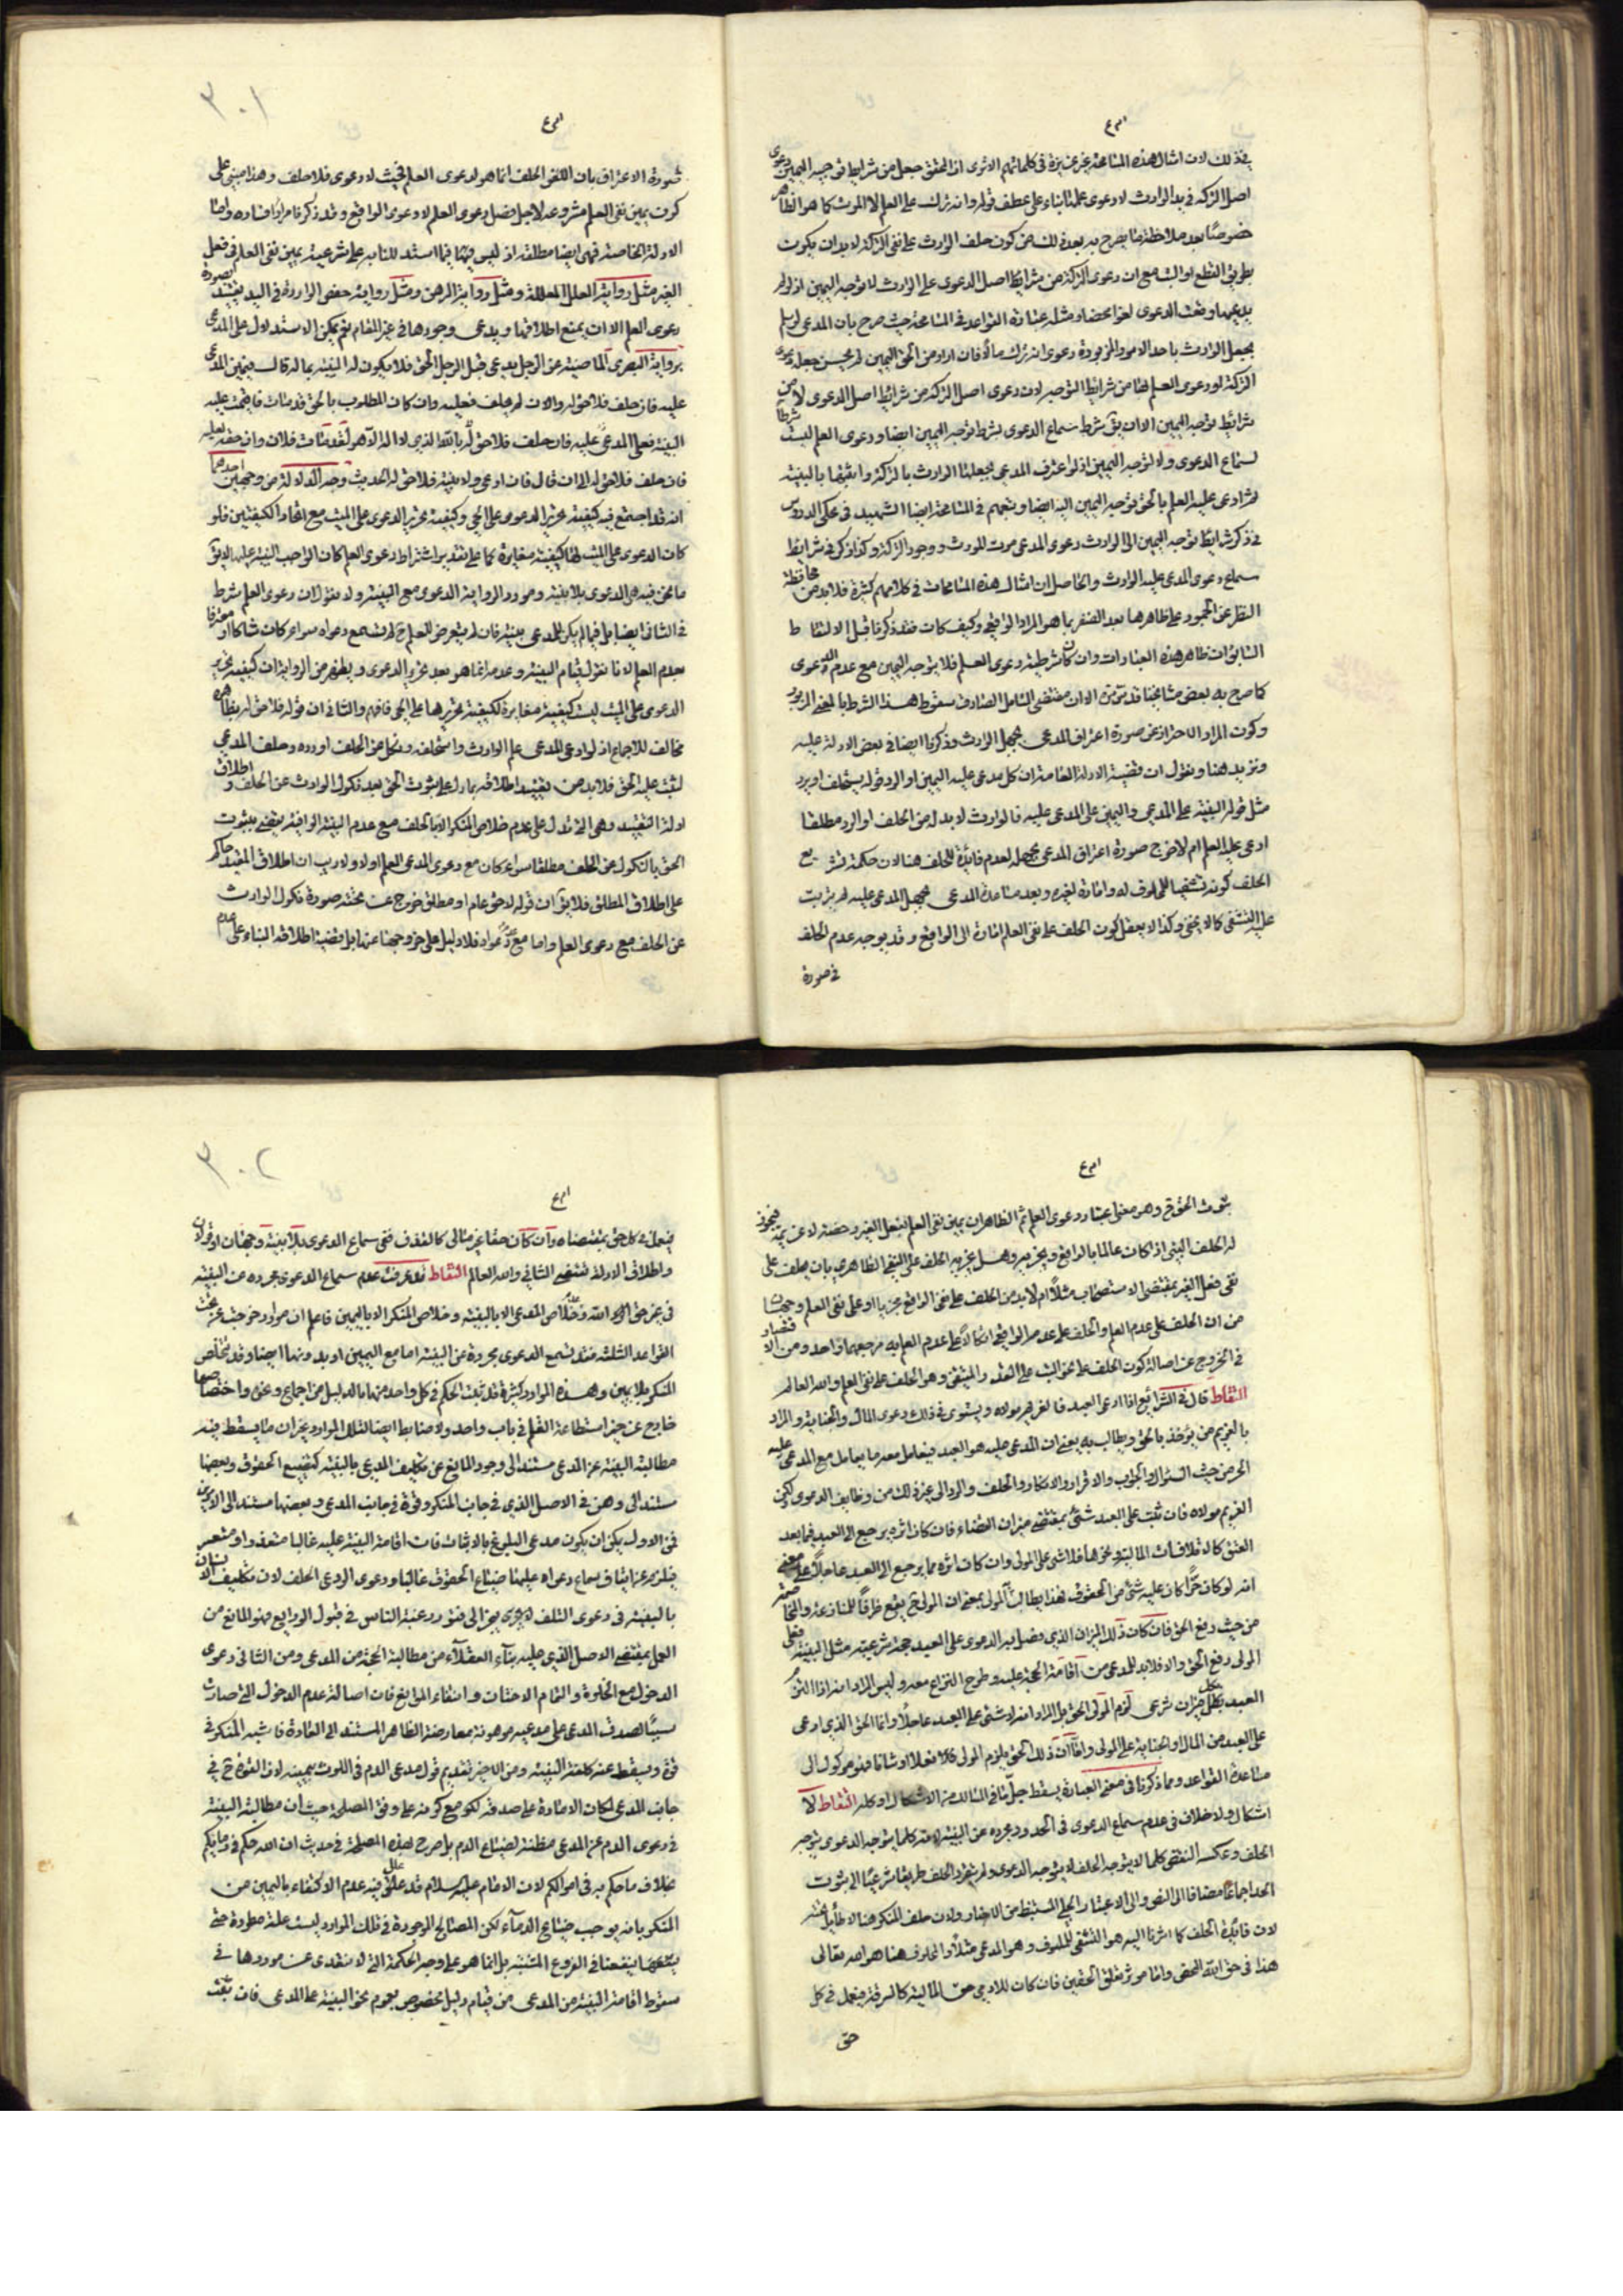 امرع
بذلك لان امثال هذه المسامحة غير عزيزة في كلماتهم الا ترى ان المحقق جعل من شرايط توجيه اليمين دعوى
اصل التركة في يد الوارث لا دعوى علمنا بناء على عطف قوله وانه ترك على العلم لا الموت كما هو الظاهر
خصوصا بعد ملاحظة ما يصرح به بعد ذلك من كون حلف الوارث على نفى التركة لا بد ان يكون
بطريق القطع او البت مع ان دعوى التركة من شرايط اصل الدعوى على الوارث لا توجه اليمين اذ لو لم
يدعيها وقعت الدعوى لغوا محضا ومثله عبارة القواعد في المسامحة حيث صرح بان المدعى لو لم
يجعل الوارث باحد الامور المزبورة دعوى انه ترك مالا فان اراد من الحق اليمين لم يحسن جعله دعوى
التركة او دعوى العلم لها من شرايط التوجه لان دعوى اصل التركة من شرائط اصل الدعوى لا من
شرائط توجه اليمين الا ان يق شرط سماع الدعوى شرط توجه اليمين ايضا ودعوى العلم ليست شرطا
لسماع الدعوى ولا لتوجه اليمين اذ لو اعترف المدعى بجهلنا الوارث بالتركة واثبتها بالبينة
ثم ادعى عليه العلم بالحق توجه اليمين اليه ايضا وتبعهم في المسامحة ايضا الشهيد في محكى الدروس
في ذكر شرايط توجه اليمين الى الوارث دعوى المدعى موت المورث ووجود التركة وكذا ذكر في شرايط
سماع دعوى المدعى عليه الوارث والحاصل ان امثال هذه المسامحات في كلامهم كثيرة فلا بد من محافظة
النظر عن الجمود على ظاهرها بعد الظفر بما هو المراد الواقعي وكيف كان فقد ذكرنا قبل الالتقاط
السابق ان ظاهر هذه العبارات وان كان شرطية دعوى العلم فلا يتوجه اليمين مع عدم الدعوى
كما صرح به بعض مشايخنا قدس سره الا ان مقتضى التامل الصادق سقوط هذا الشرط بالمعنى المزبور
وكون المراد الاحتراز عن صورة اعتراف المدعى بجهل الوارث وذكرنا ايضا في بعض الادلة عليه
ونزيد هنا ونقول ان قضية الادلة العامة ان كل مدعى عليه اليمين او الرد قوله يستحلف او يرد
مثل قوله البينة على المدعى واليمين على المدعى عليه فالوارث لا بد له من الحلف او الرد مطلقا
ادعى عليه العلم ام لا خرج صورة اعتراف المدعى بجهله لعدم فائدة للحلف هنا لان حكمة تشريع
الحلف كونه تشفيا للمحلوف له وافادة لغيره وبعد مساعدة المدعى بجهل المدعى عليه لم يترتب
عليه التشفى كما لا يخفى وكذا لا يعقل كون الحلف على نفى العلم افادة الى الواقع وقد يوجه عدم الحلف
في صورة
٣٠١
امرع
صورة الاعتراف بان اللغو الحلف انما هو لدعوى العلم فحيث لا دعوى فلا حلف وهذا مبنى على
كون يمين نفى العلم مشروعة لاجل فصل دعوى العلم لا دعوى الواقع وقد ذكرنا مرارا فساده واما
الادلة الخاصة فهى ايضا مطلقة اذ ليس فيها فيما استند للنا به على شرعية يمين نفى العلم في فعل
الغير مثل رواية العلل المعللة ومثل رواية الرهن ومثل رواية حفص الواردة في اليد بقيد بصورة
دعوى العلم الا ان يمنع اطلاقها ويدعى وجودها في غير المقام نعم يمكن الاستدلال على المدعى
برواية البصرى الماضية عن الرجل يدعى قبل الرجل الحق فلا يكون له البينة بما له قال فيمين المدعى
عليه فان حلف فلا حق له والا ان لم يحلف فعليه وان كان المطلوب بالحق قد مات فاقيمت عليه
البينة فعلى المدعى عليه فان حلف فلا حق له بالله الذى لا اله الا هو لقد مات فلان وان حقه لعليه
فان حلف فلا حق له الى ان قال فان ادعى ولا بينة فلا حق له الحديث وجه الدلالة من وجهين احدهما
انه قد اجتمع فيه كيفية تحرير الدعوى على الحى وكيفية تحرير الدعوى على الميت مع اتحاد الكيفيتين فلو
كان الدعوى على الميت لها كيفية مغايرة كما على تقدير اشتراط دعوى العلم كان الواجب البينة عليه لا يق
ما نحن فيه هى الدعوى بلا بينة ومورد الرواية الدعوى مع البينة ولا نقول ان دعوى العلم شرط
في الثانى ايضا بل فيما لم يكن للمدعى بينة فان لم يتعرض للعلم ح لم يسمع دعواه سواء كان شاكا او معترفا
بعدم العلم لانا نقول قيام البينة وعدمه انما هو بعد تحرير الدعوى ويظهر من الرواية ان كيفية تحرير
الدعوى على الميت ليست كيفية مغايرة لكيفية تحريرها على الحى فافهم والثانى ان قوله فلا حق له بظاهره
مخالف للاجماع اذ لو ادعى المدعى علم الوارث واستحلفه ونكل عن الحلف او رده وحلف المدعى
لثبت عليه الحق فلا بد من تقييد اطلاقه بما دل على ثبوت الحق بعد نكول الوارث عن الحلف و اطلاق
ادلة التقييد وهى التى تدل على عدم خلاص المنكر الا بالحلف مع عدم البينة الوافية يقضى بثبوت
الحق بالنكول عن الحلف مطلقا سواء كان مع دعوى المدعى العلم او لا ولا ريب ان اطلاق المقيد حاكم
على اطلاق المطلق فلا يق ان قوله لا حق عام او مطلق خرج عن تحته صورة نكول الوارث
عن الحلف مع دعوى العلم واما مع عدم دعواه فلا دليل على خروجها عنها بل قضية اطلاقه البناء على عدم
امرع
ثبوت الحق ح وهو معنى اعتبار دعوى العلم ثم الظاهر ان يمين نفى العلم لفعل الغير رخصة لا عزيمة فيجوز
له الحلف البتى اذا كان عالما بالواقع ويجزيه وهل يجزيه الحلف على النفى الظاهرى بان يحلف على
نفى فعل الغير بمقتضى الاستصحاب مثلا ام لا بد من الحلف على نفى الواقع جزما او على نفى العلم وجهان
من ان الحلف على عدم العلم والحلف على عدم الواقع اتكالا على عدم العلم به مرجعهما واحد ومن الاقتصار
في الخروج عن اصالة كون الحلف على نحو البت على القدر المتيقن وهو الحلف على نفى العلم والله العالم
التقاط قال في الشرائع اذا ادعى العبد فالغريم مولاه ويستوى في ذلك دعوى المال والجناية والمراد
بالغريم من يؤخذ بالحق ويطالب به يعنى ان المدعى عليه هو العبد فيعامل معه ما يعامل مع المدعى عليه
الحر من حيث السؤال والجواب والاقرار والانكار والحلف والرد الى غير ذلك من وظايف الدعوى لكن
الغريم مولاه فان ثبت على العبد شئ بمقتضى ميزان القضاء فان كان اثره يرجع الى العبد فيما بعد
العتق كالاتلافات المالية ونحوها فلا شئ على المولى وان كان اثره مما يرجع الى العبد عاجلا على معنى
انه لو كان حرا كان عليه شئ من الحقوق فهذا يطالب المولى بمعنى ان المولى ح يقع طرفا للمنازعة والتخاصم
من حيث دفع الحق فان كان ذلك الميزان الذى فصل به الدعوى على العبد حجة شرعية مثل البينة فعلى
المولى دفع الحق والا فلا بد للمدعى من اقامة الحجة عليه وطرح النزاع معه وليس المراد انه اذا التزم
العبد بكل ميزان شرعى لزم المولى الحق بل المراد انه لا شئ على العبد عاجلا وانما الحق الذى ادعى
على العبد من المال او الجناية على المولى واما ان ذلك الحق يلزم المولى كلا فعلا او شانا فهو موكول الى
مساعدة القواعد ومما ذكرنا في معنى العبارة يسقط جل ما في المسالك من الاشكال او كله التقاط لا
اشكال ولا خلاف في عدم سماع الدعوى في الحدود مجردة عن البينة لانه كلما يتوجه الدعوى يتوجه
الحلف وعكسه النقيض كلما لا يتوجه الحلف لا يتوجه الدعوى ولم يتقرر الحلف طريقا شرعيا الى ثبوت
الحد اجماعا مضافا الى النص والى الاعتبار الجلى المستنبط من الاخبار ولان حلف المنكر هنا لا طائل تحته
لان فائدة الحلف كما اشرنا اليه هو التشفى للمحلوف وهو المدعى مثلا والمحلوف هنا هو الله تعالى
هذا في حق الله المحض واما مورد تعلق الحقين فان كان للادمى حق المالية كالسرقة فيعمل في كل
حق
٣٠٢
امرع
فيعمل في كل حق بمقتضاه وان كان حقا غير مالى كالقذف ففى سماع الدعوى بلا بينة وجهان او قولان
واطلاق الادلة تقتضى الثانى والله العالم التقاط قد عرفت عدم سماع الدعوى مجردة عن البينة
في غير حق الله وعدم خلاص المدعى الا بالبينة وخلاص المنكر الا باليمين فاعلم ان موارد خرجت عن تحت
القواعد الثلثة فقد تسمع الدعوى مجردة عن البينة اما مع اليمين او بدونها ايضا وقد يخلص
المنكر بلا يمين وهذه الموارد كثيرة قد ثبت الحكم في كل واحد منها بالدليل من اجماع وغيره واختصاصها
خارج عن حيز استطاعة الفهم في باب واحد ولا ضابط ايضا لتلك الموارد غير ان ما يسقط فيه
مطالبة البينة عن المدعى مستند الى وجود المانع عن تكليف المدعى بالبينة كتضييع الحقوق وبعضها
مستند الى وهن في الاصل الذى في جانب المنكر وقوة في جانب المدعى وبعضها مستند الى الامرين
فمن الاول يمكن ان يكون مدعى البلوغ بالاثبات فان اقامة البينة عليه غالبا متعذر او متعسر
فيلزم من ايقاف سماع دعواه عليها ضياع الحقوق غالبا ودعوى الودعى الحلف لان تكليف الانسان
بالبينة في دعوى التلف لا يجرى يجر الى فتور رغبة الناس في قبول الودايع فهو المانع من
العمل بمقتضى الاصل الذى عليه بناء العقلاء من مطالبة الحجة من المدعى ومن الثانى دعوى
الدخول مع الخلوة والتمام الاحثاث وانتفاء الموانع فان اصالة عدم الدخول التى صارت
سببا لصدق المدعى على مدعيه موهونة بمعارضة الظاهر المستند الى العادة فاشبه المنكر في
قوة ويسقط عنه كلفة البينة ومن الاخير تقديم قول مدعى الدم في اللوث بيمينه لان القوة ح في
جانب المدعى لمكان الامارة على صدقه لكن مع كونه على وفق المصلحة حيث ان مطالبة البينة
في دعوى الدم عن المدعى مظنة لضياع الدم بل صرح بهذه المصلحة في حديث ان الله حكم في دمائكم
بخلاف ما حكم به في اموالكم لان الامام عليه السلام قد علل فيه عدم الاكتفاء باليمين من
المنكر بانه يوجب ضياع الدماء لكن المصالح الموجودة في تلك الموارد ليست علة مطردة حتى
ينفعنا في الفروع المشتبه بل انما هو على وجه الحكمة التى لا تتعدى عن موردها في
سقوط اقامة البينة من المدعى من قيام دليل بخصوص عموم نحو البينة على المدعى فان ثبت